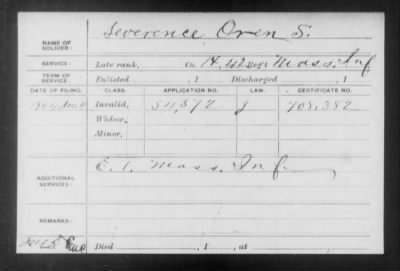 NAME OF SOLDIER: Severence, Oren S.
SERVICE: Late rank, Co. H, 42 Regt Mass. Inf
TERM OF SERVICE: Enlisted , 1 Discharged , 1
DATE OF FILING. CLASS. APPLICATION NO. LAW. CERTIFICATE NO.
Invalid, 511,872 J 708,382
Widow,
Minor,
ADDITIONAL SERVICES: E, 1, Mass. Inf.
REMARKS:
Died , 1 , at